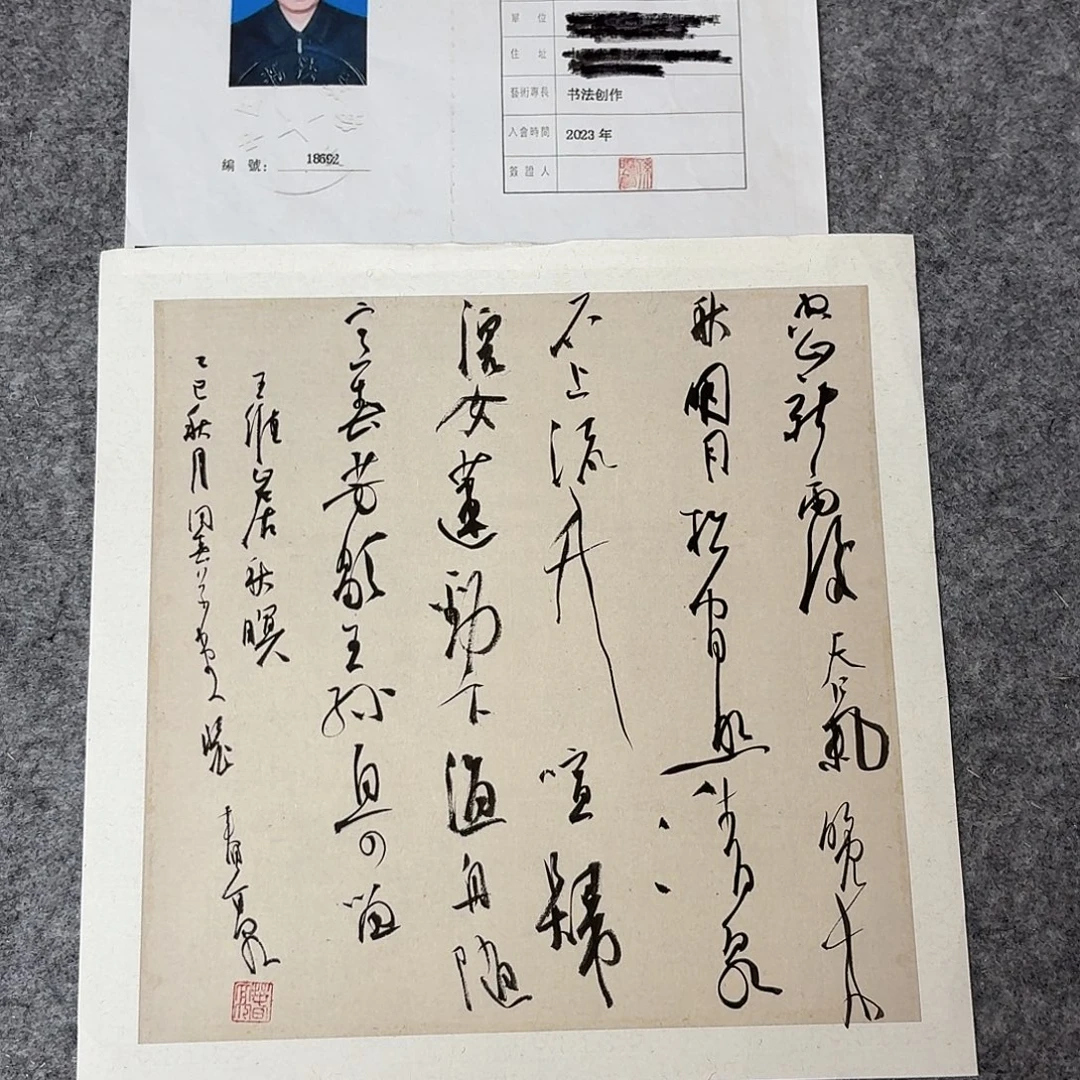 單 位
住 址
藝術專長 书法创作
入會時間 2023 年
簽 證 人
編 號: 18692
空山新雨後天氣晚来
秋明月松间照清泉
石上流竹喧歸
浣女蓮動下渔舟随
意春芳歇王孙自可留
王維山居秋暝
乙巳秋月